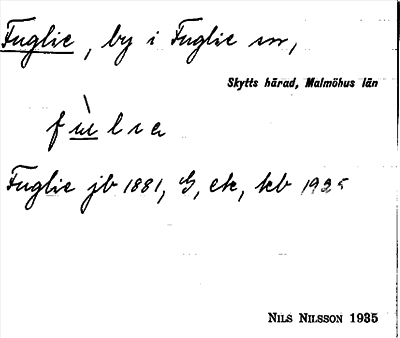 Fuglie, by i Fuglie sn,
Skytts härad, Malmöhus län
Fuglie jb 1881, G, ek, kb 1925
NILS NILSSON 1935